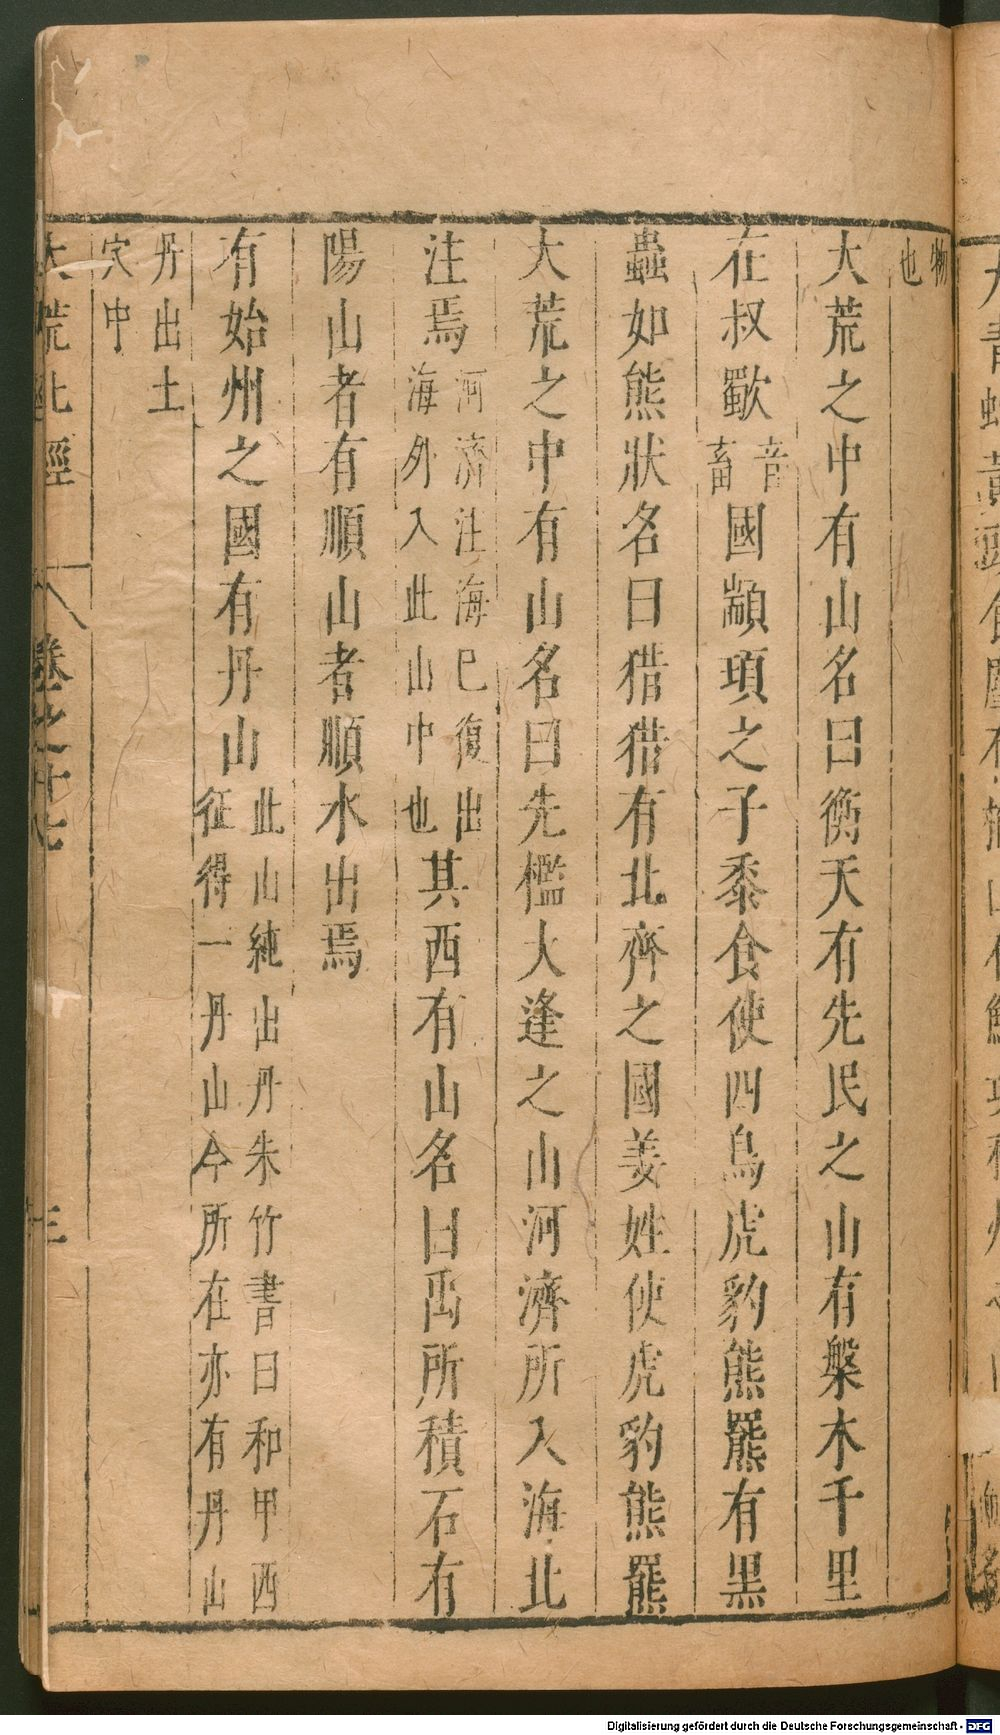 物也
大荒之中有山名曰衡天有先民之山有槃木千里
在叔歜音畜國顓頊之子黍食使四鳥虎豹熊羆有黑
蟲如熊狀名曰猎猎有北齊之國姜姓使虎豹熊羆
大荒之中有山名曰先檻大逢之山河濟所入海北
注焉河濟注海巳復出海外入此山中也其西有山名曰禹所積石有
陽山者有順山者順水出焉
有始州之國有丹山此山純出丹朱竹書曰和甲西征得一丹山今所在亦有丹山
丹出土穴中
大荒北經 卷之十七 三
Digitalisierung gefördert durch die Deutsche Forschungsgemeinschaft - DFG